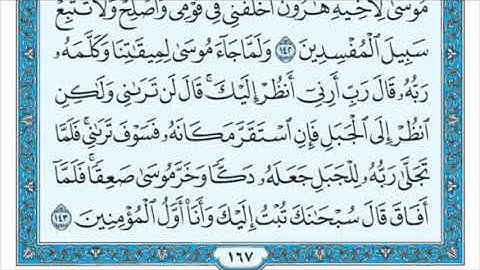 مُوسَىٰ لِأَخِيهِ هَٰرُونَ ٱخْلُفْنِى فِى قَوْمِى وَأَصْلِحْ وَلَا تَتَّبِعْ
سَبِيلَ ٱلْمُفْسِدِينَ ١٤٢ وَلَمَّا جَآءَ مُوسَىٰ لِمِيقَٰتِنَا وَكَلَّمَهُۥ
رَبُّهُۥ قَالَ رَبِّ أَرِنِىٓ أَنظُرْ إِلَيْكَ ۚ قَالَ لَن تَرَىٰنِى وَلَٰكِنِ
ٱنظُرْ إِلَى ٱلْجَبَلِ فَإِنِ ٱسْتَقَرَّ مَكَانَهُۥ فَسَوْفَ تَرَىٰنِى ۚ فَلَمَّا
تَجَلَّىٰ رَبُّهُۥ لِلْجَبَلِ جَعَلَهُۥ دَكًّا وَخَرَّ مُوسَىٰ صَعِقًا ۚ فَلَمَّآ
أَفَاقَ قَالَ سُبْحَٰنَكَ تُبْتُ إِلَيْكَ وَأَنَا۠ أَوَّلُ ٱلْمُؤْمِنِينَ ١٤٣
١٦٧